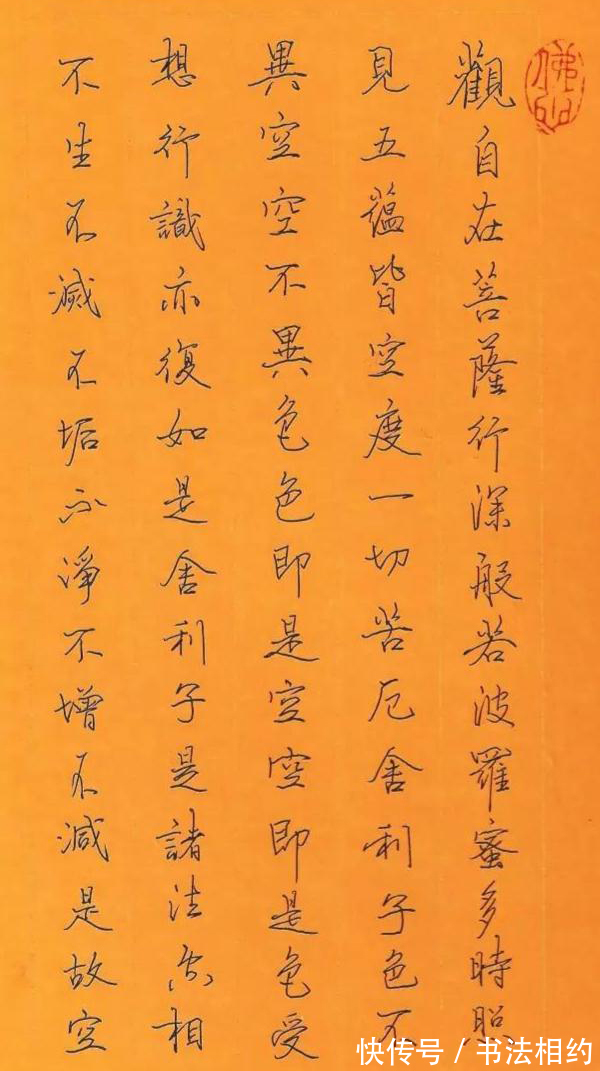 觀自在菩薩行深般若波羅蜜多時照
見五蘊皆空度一切苦厄舍利子色不
異空空不異色色即是空空即是色受
想行識亦復如是舍利子是諸法空相
不生不滅不垢不淨不增不減是故空
快传号 / 书法相约